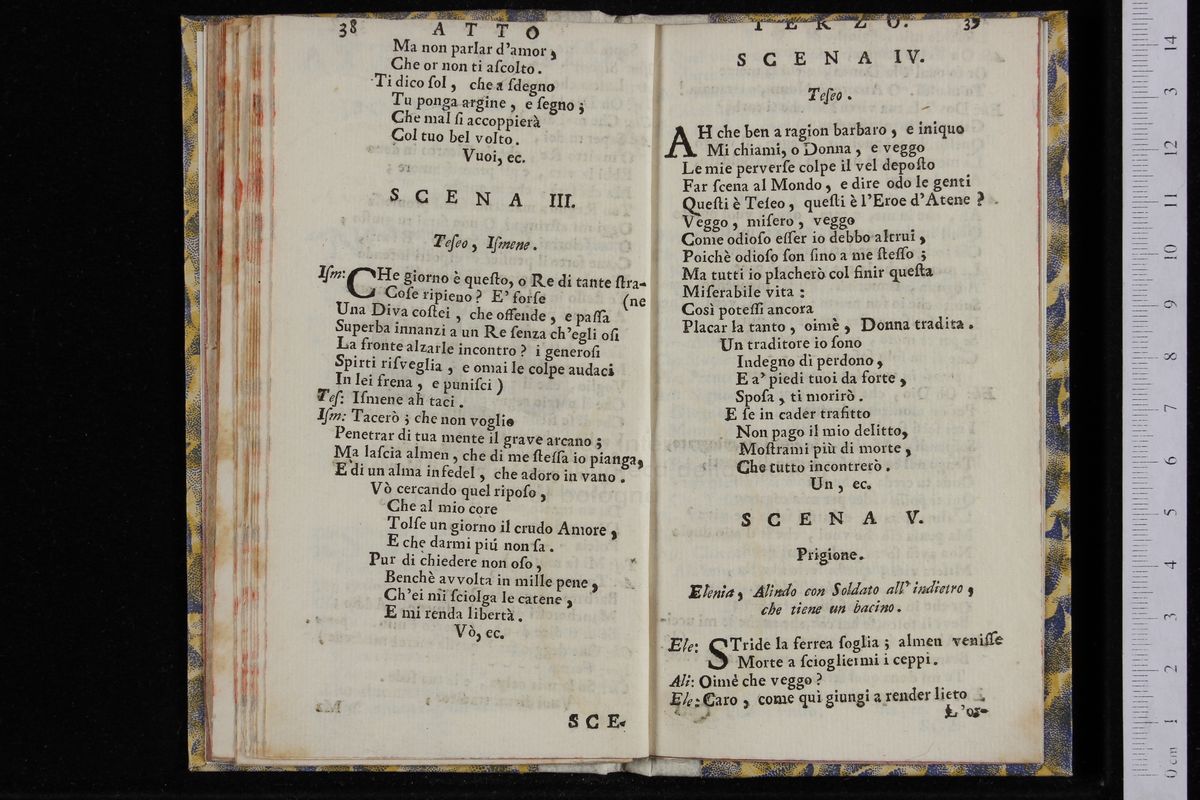 38 ATTO
Ma non parlar d'amor,
Che or non ti aſcolto.
Ti dico ſol, che a ſdegno
Tu ponga argine, e ſegno;
Che mal ſi accoppierà
Col tuo bel volto.
Vuoi, ec.
SCENA III.
Teſeo, Iſmene.
Iſm: CHe giorno è queſto, o Re di tante ſtra-
Coſe ripieno? E' forſe (ne
Una Diva coſtei, che offende, e paſſa
Superba innanzi a un Re ſenza ch'egli oſi
La fronte alzarle incontro? i generoſi
Spirti riſveglia, e omai le colpe audaci
In lei frena, e puniſci)
Teſ: Iſmene ah taci.
Iſm: Tacerò; che non voglio
Penetrar di tua mente il grave arcano;
Ma laſcia almen, che di me ſteſſa io pianga,
E di un alma infedel, che adoro in vano.
Vò cercando quel ripoſo,
Che al mio core
Tolſe un giorno il crudo Amore,
E che darmi piú non ſa.
Pur di chiedere non oſo,
Benchè avvolta in mille pene,
Ch'ei mi ſciolga le catene,
E mi renda libertà.
Vò, ec.
SCE-
TERZO. 39
SCENA IV.
Teſeo.
AH che ben a ragion barbaro, e iniquo
Mi chiami, o Donna, e veggo
Le mie perverſe colpe il vel depoſto
Far ſcena al Mondo, e dire odo le genti
Queſti è Teſeo, queſti è l'Eroe d'Atene?
Veggo, miſero, veggo
Come odioſo eſſer io debbo altrui,
Poichè odioſo ſon ſino a me ſteſſo;
Ma tutti io placherò col finir queſta
Miſerabile vita:
Così poteſſi ancora
Placar la tanto, oimè, Donna tradita.
Un traditore io ſono
Indegno di perdono,
E a' piedi tuoi da forte,
Spoſa, ti morirò.
E ſe in cader trafitto
Non pago il mio delitto,
Moſtrami più di morte,
Che tutto incontrerò.
Un, ec.
SCENA V.
Prigione.
Elenia, Alindo con Soldato all' indietro,
che tiene un bacino.
Ele: STride la ferrea ſoglia; almen veniſſe
Morte a ſcioglieimi i ceppi.
Ali: Oimè che veggo?
Ele: Caro, come qui giungi a render lieto
L'or-